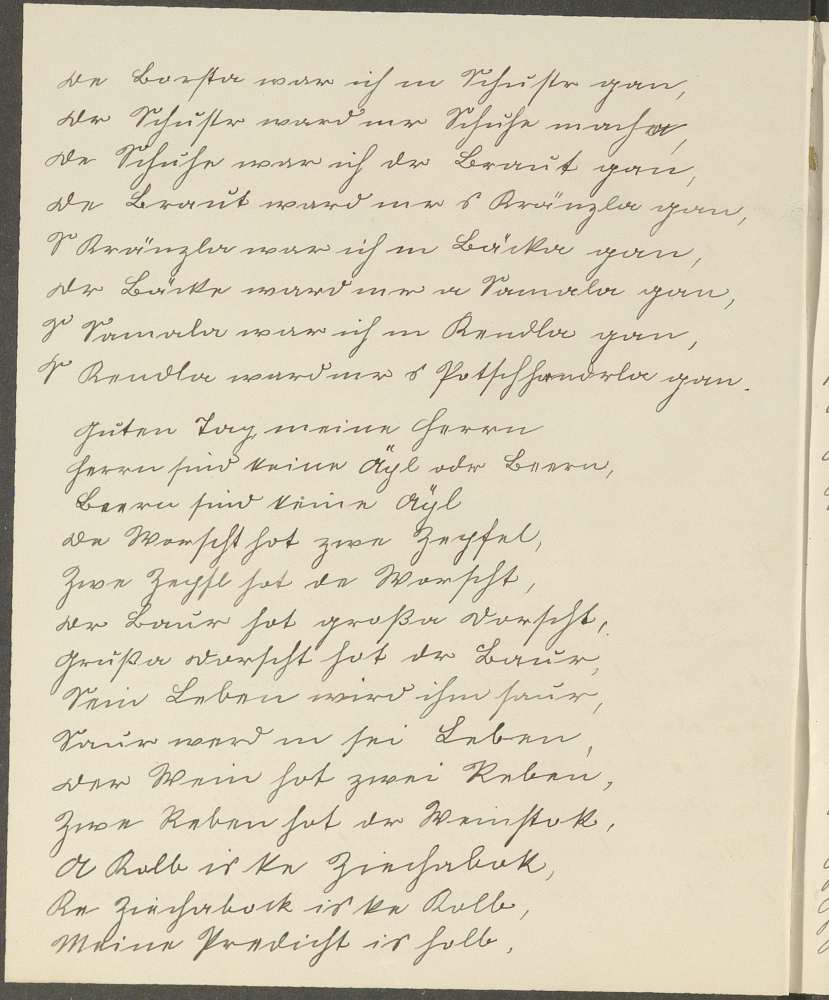 De Borsta war ich m Schustr gan,
Dr Schustr ward mr Schuhe macha,
De Schuhe war ich dr Braut gan,
De Braut ward mr s Kränzla gan,
S Kränzla war ich m Bäcka gan,
Dr Bäcke ward mr a Samala gan,
S Samala war ich m Kendla gan,
S Kendla ward mr s Potschhandrla gan.
Guten Tag, meine Herrn
Herrn sind keine Äpl odr Beern,
Beern sind keine Äpl
De Worscht hot zwe Zepfel,
Zwe Zepfl hot de Worscht,
Dr Baur hot großa Dorscht,
Grußa Dorscht hot dr Baur,
Sein Leben wird ihm saur,
Saur werd m sei Leben,
Der Wein hot zwei Reben,
Zwe Reben hot dr Weinstok,
A Kolb is ke Ziechabok,
Ke Ziechabock is ke Kolb,
Meine Predicht is holb.